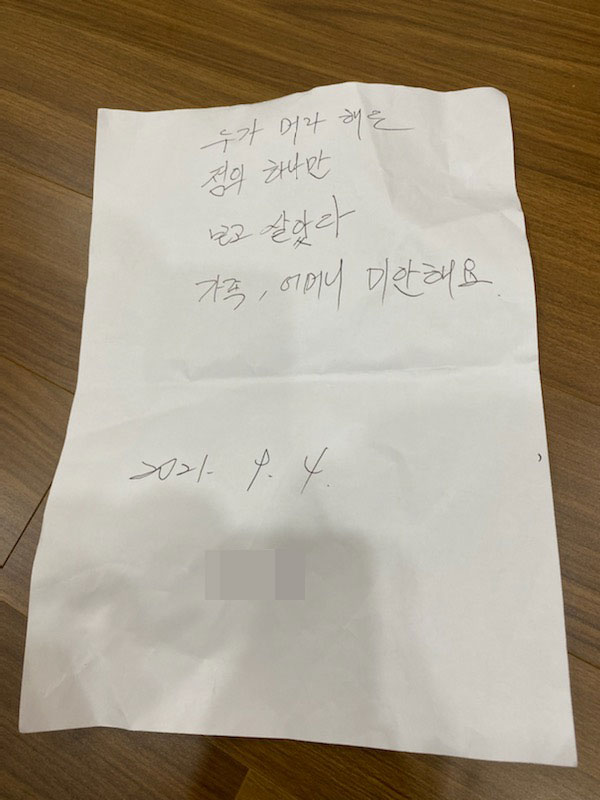 누가 머라 해도
정의 하나만
보고 살았다
가족, 어머니 미안해요.
2021. 9. 4.